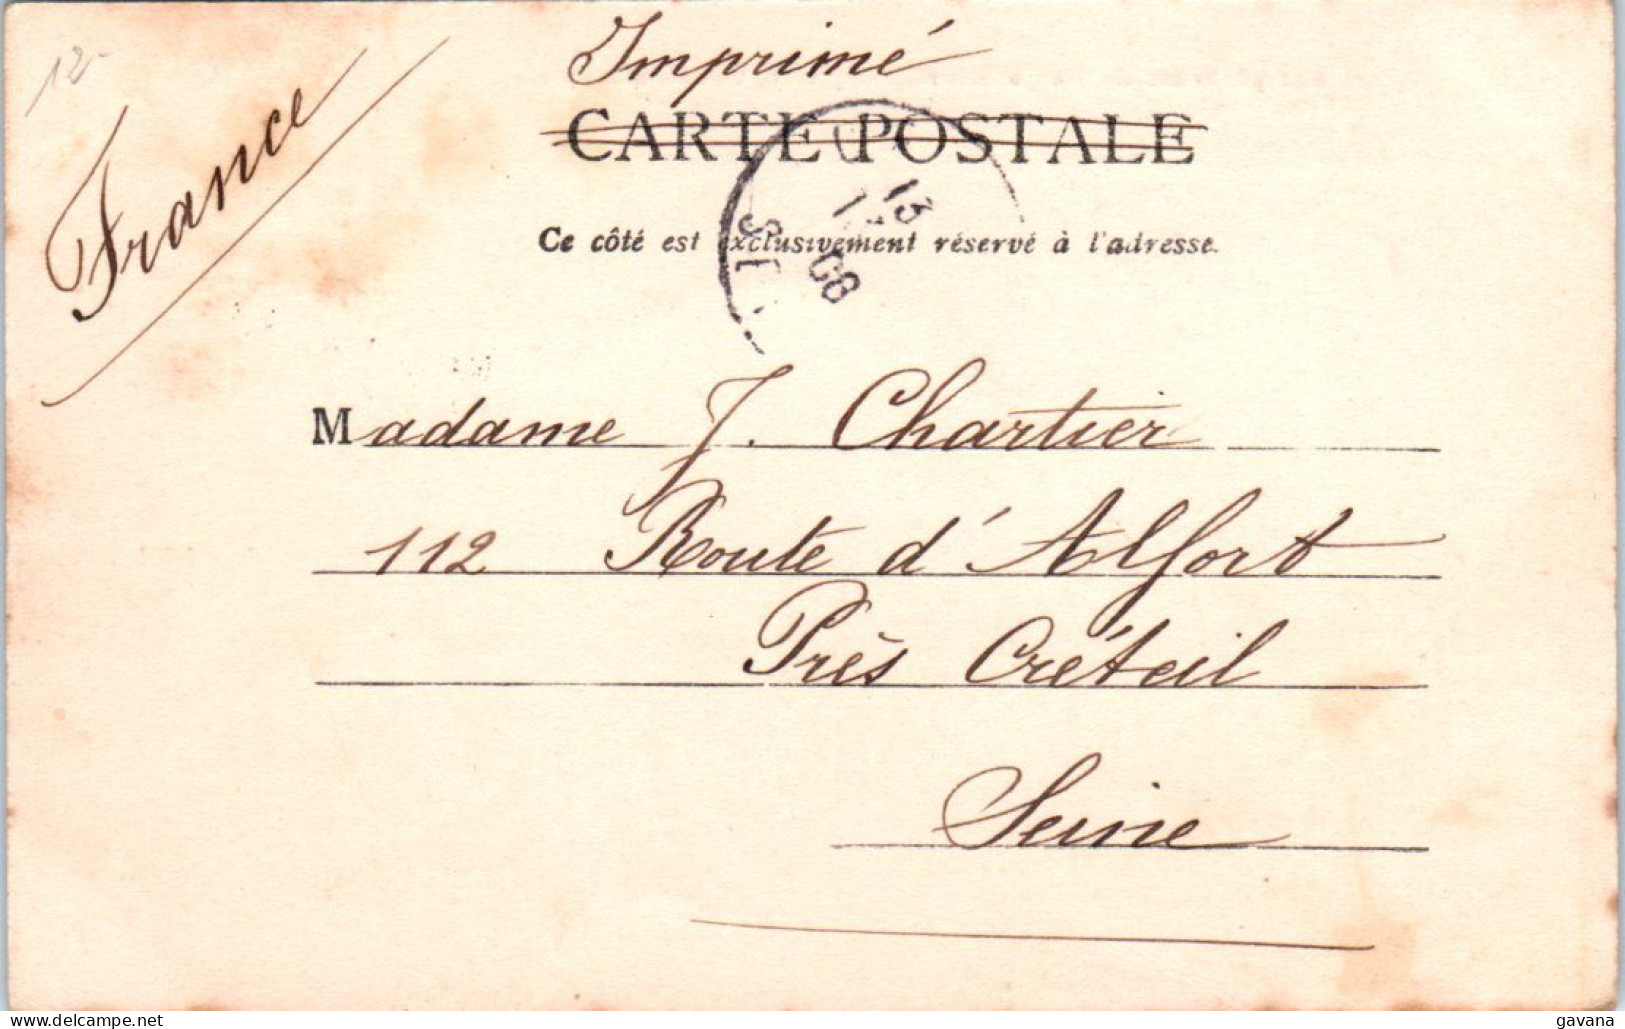 12-
Imprimé
France
CARTE POSTALE
Ce côté est exclusivement réservé à l'adresse.
13
08
Madame J. Chartier
112 Route d'Alfort
Près Créteil
Seine
delcampe.net
gavana